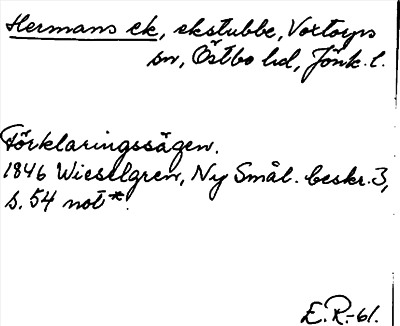 Hermans ek, ekstubbe, Voxtorps
sn, Östbo hd, Jönk. l.
Förklaringssägen.
1846 Wieselgren, Ny Smål. beskr. 3,
s. 54 not*.
E.R.-61.